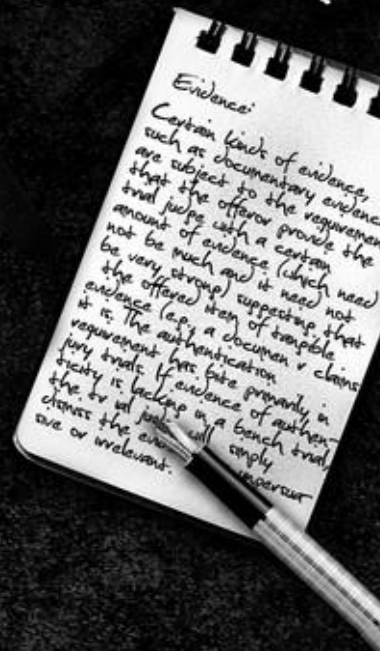 Evidence:
Certain kinds of evidence,
such as documentary evidence
are subject to the requirement
that the offeror provide the
trial judge with a certain
amount of evidence (which need
not be much and it need not
be very strong) suggesting that
the offered item of tangible
evidence (e.g., a documen r claims
it is. The authentication
requirement has bite primarily in
jury trials. If evidence of authen-
ticity is lacking in a bench trial,
the tr ial ju ill simply
dismiss the evi impersua
sive or irrelevant.